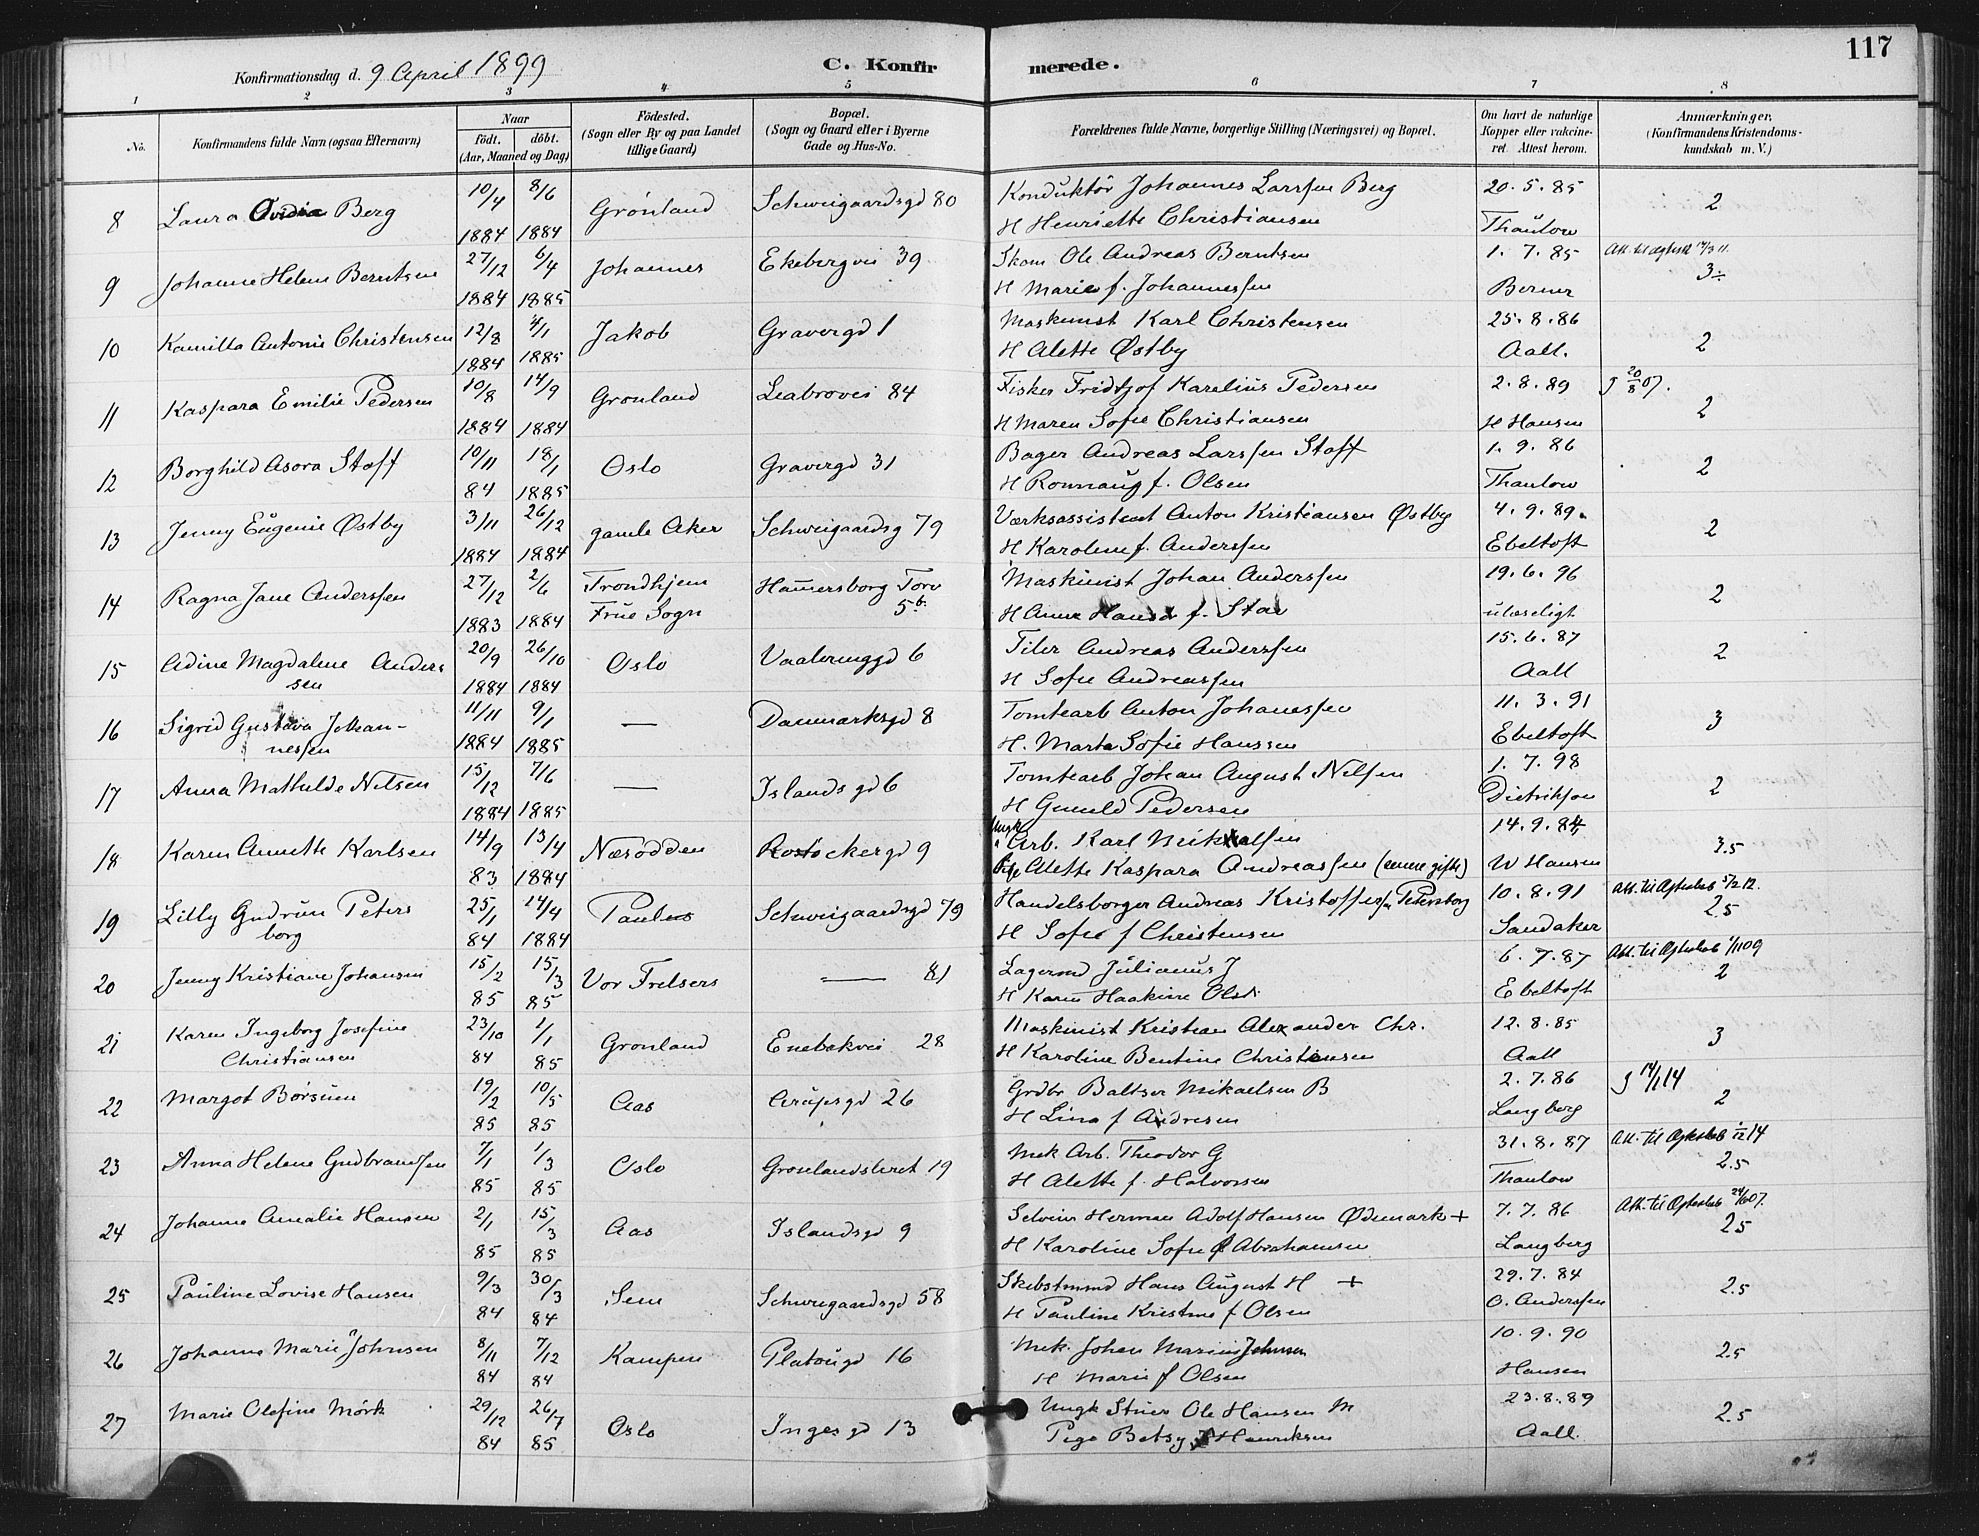 117
Konfirmationsdag d. 9 April 1899 C. Konfirmerede.
1 2 3 4 5 6 7 8
No. Konfirmandens fulde Navn (ogsaa Efternavn) Naar født. døbt. (Aar, Maaned og Dag) Fødested. (Sogn eller By og paa Landet tillige Gaard) Bopæl. (Sogn og Gaard eller i Byerne Gade og Hus-No. Forældrenes fulde Navne, borgerlige Stilling (Næringsvei) og Bopæl. Om havt de naturlige Kopper eller vakcineret. Attest herom. Anmærkninger. (Konfirmandens Kristendomskundskab m. V.)
8 Laura Ovidia Berg 10/4 8/6 Grønland Schweigaardsgd 80 Konduktør Johannes Larssen Berg 20.5.85 2
1884 1884 H Henriette Christiansen Thaulow
9 Johanne Helene Berntsen 27/12 6/4 Johannes Ekebergvei 39 Skom Ole Andreas Berntsen 1.7.85 3÷
1884 1885 H Marie f. Johannessen Berner
10 Kamilla Antonie Christensen 12/8 4/1 Jakob Gravergd 1 Maskinist Karl Christensen 25.8.86 2
1884 1885 H Alette Østby Aall.
11 Kaspara Emilie Pedersen 10/8 14/9 Grønland Leabrovei 84 Fisker Fridtjof Karelius Pedersen 2.8.89 J 20/8 07. 2
1884 1884 H Maren Sofie Christiansen H Hansen
12 Borghild Asora Staff 10/11 18/1 Oslo Gravergd 31 Bager Andreas Larssen Staff 1.9.86 2
84 1885 H Rønnaug f. Olsen Thaulow
13 Jenny Eugenie Østby 3/11 26/12 gamle Aker Schweigaardsg 79 Værksassistent Anton Kristiansen Østby 4.9.89. 2
1884 1884 H Karoline f. Anderssen Ebeltoft
14 Ragna Jane Anderssen 27/12 2/6 Trondhjem Hamersborg Torv Maskinist Johan Anderssen 19.6.96 2
1883 1884 Frue Sogn 5b. H Anna f. ulæseligt
15 Adine Magdalene Anders 20/9 26/10 Oslo Vaaleringgd 6 Tiler Andreas Anderssen 15.6.87 2
sen 1884 1884 H Sofie Andreassen Aall
16 Sigrid Gustava Johan- 11/11 9/1 — Danmarksgd 8 Tomtearb Anton Johannessen 11.3.91 3
nessen 1884 1885 H. Marta Sofie Hanssen Ebeltoft
17 Anna Mathilde Nilsen 15/12 7/6 — Islandsgd 6 Tomtearb Johan August Nilsen 1.7.98 2
1884 1885 H Gunild Pedersen Dietrikson
18 Karen Annette Karlsen 14/9 13/4 Næsodden Rostockergd 9 Ungk Arb. Karl Mikkalsen 14.9.84 3.5
83 1884 Pige Alette Kaspara Andreassen (senere gifte) W Hansen
19 Lilly Gudrun Peters 25/1 14/4 Paulus Schweigaardsgd 79 Handelsborger Andreas Kristoffersen Petersborg 10.8.91 Att. til Ægteskab 5/2 12. 2.5
borg 84 1884 H Sofie f Christensen Sandaker
20 Jenny Kristiane Johansen 15/2 15/3 Vor Frelsers — 81 Lagermd Julianus J 6.7.87 Att. til Ægteskab 1/11 09 2
85 85 H Karen Haakine Olsd. Ebeltoft
21 Karen Ingeborg Josefine 23/10 1/1 Grønland Enebakvei 28 Maskinist Kristian Alexander Chr. 12.8.85 3
Christiansen 84 85 H Karoline Bentine Christensen Aall
22 Margot Børsum 19/2 10/5 Aas Arupsgd 26 Grdbr Baltser Mikaelsen B 2.7.86 J 14/1 14 2
85 85 H Lina f Andresen Langberg
23 Anna Helene Gudbrandsen 7/1 1/3 Oslo Grønlandsleret 19 Mek Arb. Theodor G 31.8.87 Att. til Ægteskab 1/12 14 2.5
85 85 H Alette f. Halvorsen Thaulow
24 Johanne Amalie Hansen 2/1 15/3 Aas Islandsgd 9 Selveier Herman Adolf Hansen Ødemark + 7.7.86 Att. til Ægteskab 2.5
85 85 H Karoline Sofie f Abrahamsen Langberg
25 Pauline Lovise Hansen 9/3 30/3 Sem Schweigaardsgd 58 Skibstmmd Hans August H + 29.7.84 2.5
84 84 H Pauline Kristine f Olsen O. Anderssen
26 Johanne Marie Johnsen 8/11 7/12 Kampen Platougd 16 Mek. Johan Marius Johnsen 10.9.90 2.5
84 84 H Marie f Olsen Hansen
27 Marie Olefine Mørk 29/12 26/7 Oslo Ingesgd 13 Ungk Stuer Ole Hansen M 23.8.89 2.5
84 85 Pige Betsy Henriksen Aall.